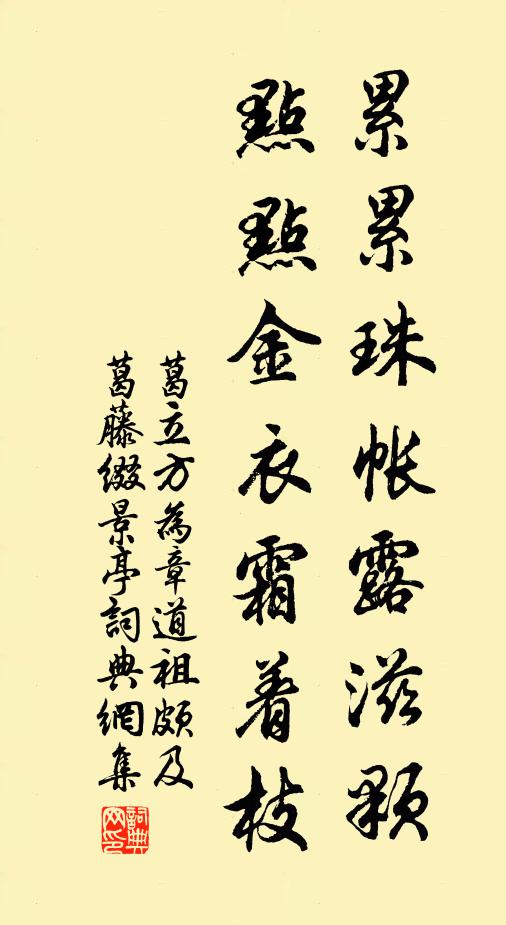 累累珠帐露滋颗
點點金衣霜着枝
葛立方為章道祖頗及
葛藤缀景亭詞典網集
詞典网印